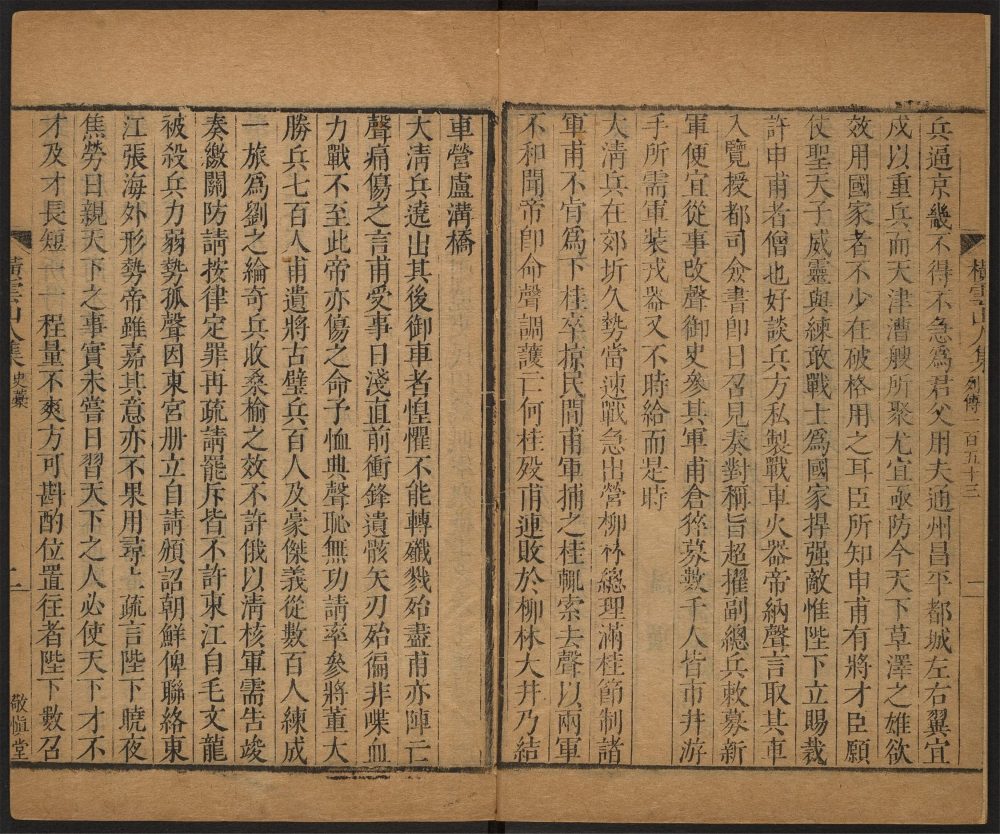 橫雲山人集 列傳一百五十三 二
兵逼京畿不得不急為君父用夫通州昌平都城左右翼宜
戍以重兵而天津漕艘所聚尤宜亟防今天下草澤之雄欲
效用國家者不少在破格用之耳臣所知申甫有將才臣願
使聖天子威靈與練敢戰士為國家捍强敵惟陛下立賜裁
許申甫者僧也好談兵方私製戰車火器帝納聲言取其車
入覽授都司僉書即日召見奏對稱旨超擢副總兵敕募新
軍便宜從事改聲御史參其軍甫倉猝募數千人皆市井游
手所需軍裝戎器又不時給而是時
大淸兵在郊圻久勢當速戰急出營柳林總理滿桂節制諸
軍甫不肯為下桂卒掠民間甫軍捕之桂輒索去聲以兩軍
不和聞帝即命聲調護亡何桂歿甫連敗於柳林大井乃結
車營盧溝橋
大淸兵遶出其後御車者惶懼不能轉殲戮殆盡甫亦陣亡
聲痛傷之言甫受事日淺直前衝鋒遺骸矢刃殆徧非喋血
力戰不至此帝亦傷之命予恤典聲恥無功請率參將董大
勝兵七百人甫遺將古璧兵百人及豪傑義從數百人練成
一旅為劉之綸奇兵收桑榆之效不許俄以淸核軍需告竣
奏繳關防請按律定罪再疏請罷斥皆不許東江自毛文龍
被殺兵力弱勢孤聲因東宮册立自請頒詔朝鮮俾聯絡東
江張海外形勢帝雖嘉其意亦不果用尋上疏言陛下曉夜
焦勞日親天下之事實未嘗日習天下之人必使天下才不
才及才長短一一程量不爽方可斟酌位置往者陛下數召
橫雲山人集 史藁 二 敬愼堂